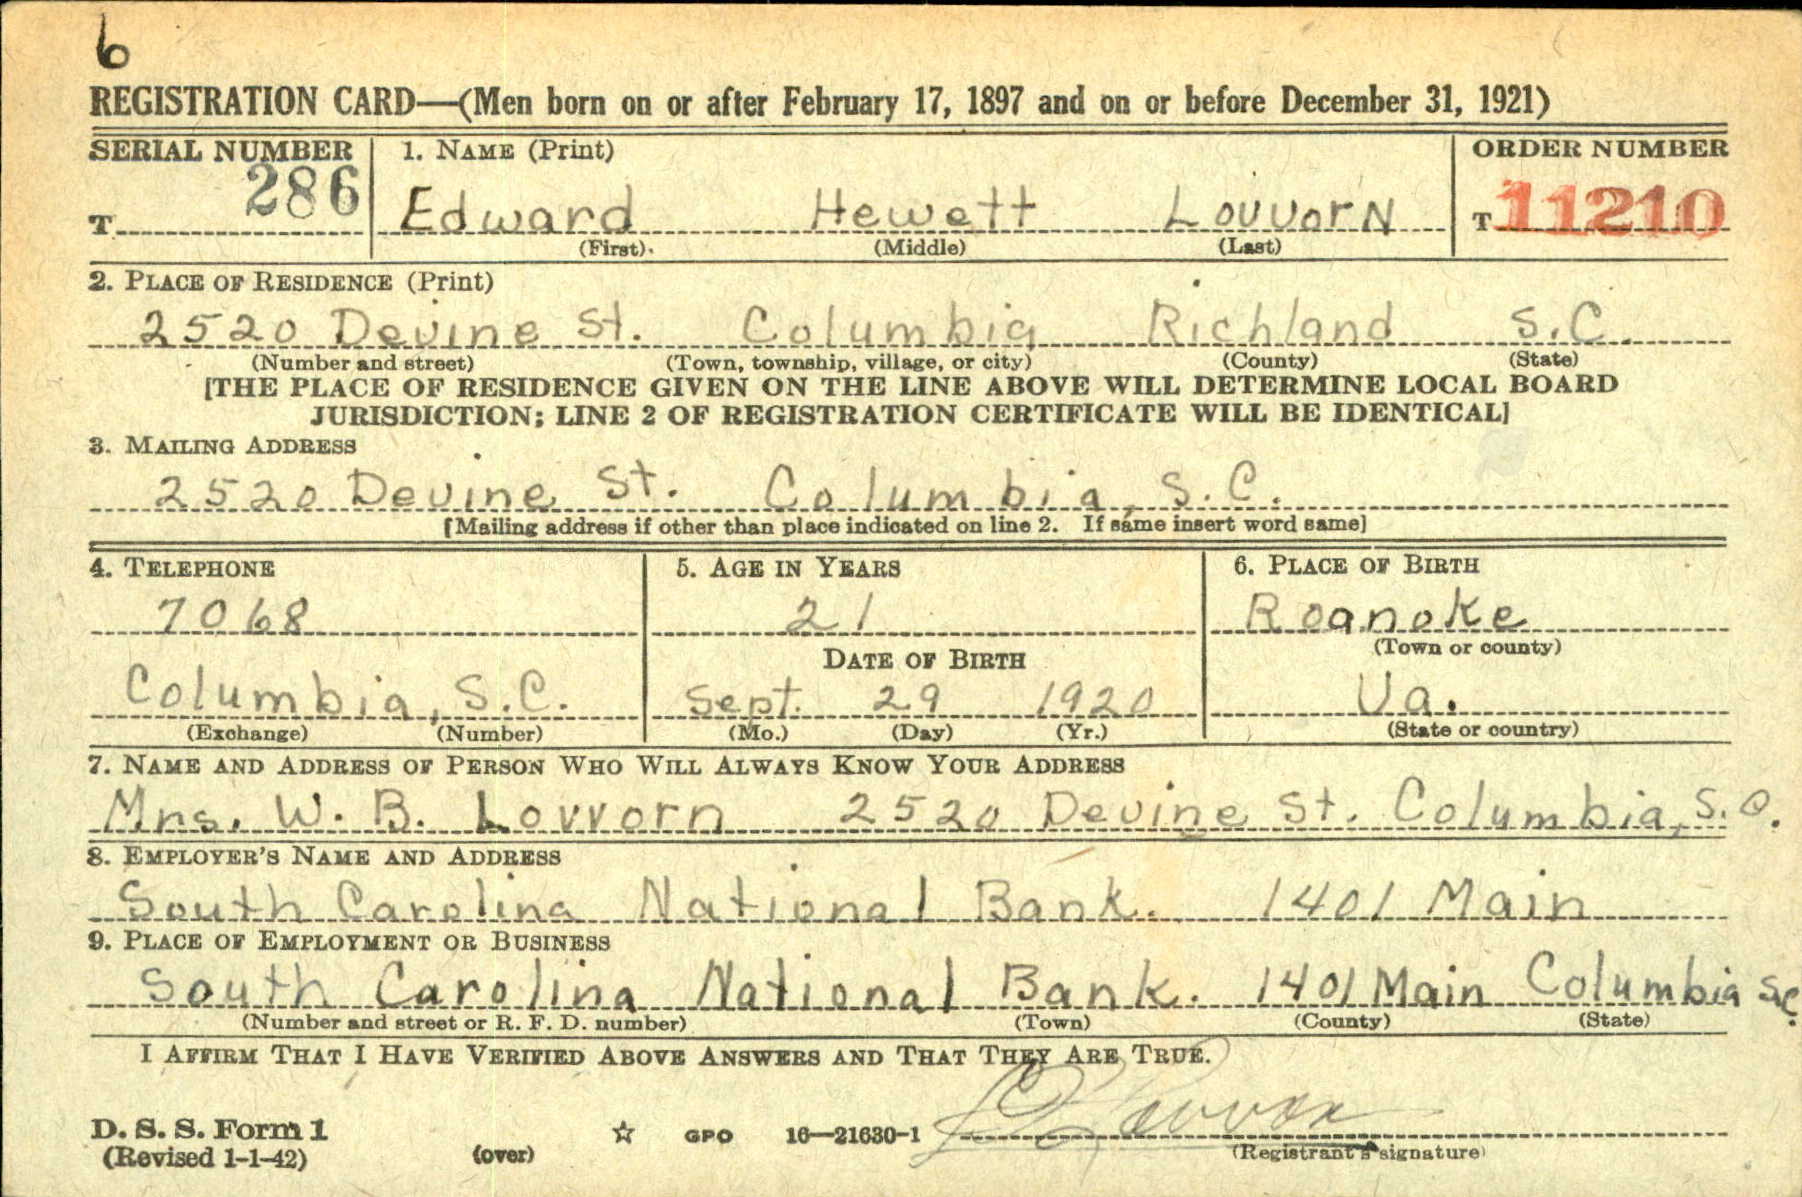 6
REGISTRATION CARD—(Men born on or after February 17, 1897 and on or before December 31, 1921)
SERIAL NUMBER 1. NAME (Print) ORDER NUMBER
T 286 Edward Hewett Lovvorn T 11210
(First). (Middle) (Last)
2. PLACE OF RESIDENCE (Print)
2520 Devine St. Columbia Richland S.C.
(Number and street) (Town, township, village, or city) (County) (State)
[THE PLACE OF RESIDENCE GIVEN ON THE LINE ABOVE WILL DETERMINE LOCAL BOARD
JURISDICTION; LINE 2 OF REGISTRATION CERTIFICATE WILL BE IDENTICAL]
3. MAILING ADDRESS
2520 Devine St. Columbia, S.C.
[Mailing address if other than place indicated on line 2. If same insert word same]
4. TELEPHONE 5. AGE IN YEARS 6. PLACE OF BIRTH
7068 21 Roanoke
DATE OF BIRTH (Town or county)
Columbia, S.C. Sept. 29 1920 Va.
(Exchange) (Number) (Mo.) (Day) (Yr.) (State or country)
7. NAME AND ADDRESS OF PERSON WHO WILL ALWAYS KNOW YOUR ADDRESS
Mrs. W. B. Lovvorn 2520 Devine St. Columbia, S.C.
8. EMPLOYER'S NAME AND ADDRESS
South Carolina National Bank. 1401 Main
9. PLACE OF EMPLOYMENT OR BUSINESS
South Carolina National Bank. 1401 Main Columbia S.C.
(Number and street or R. F. D. number) (Town) (County) (State)
I AFFIRM THAT I HAVE VERIFIED ABOVE ANSWERS AND THAT THEY ARE TRUE.
D. S. S. Form 1
(Revised 1-1-42) (over) ☆ GPO 16—21630-1 Lovvorn
(Registrant's signature)